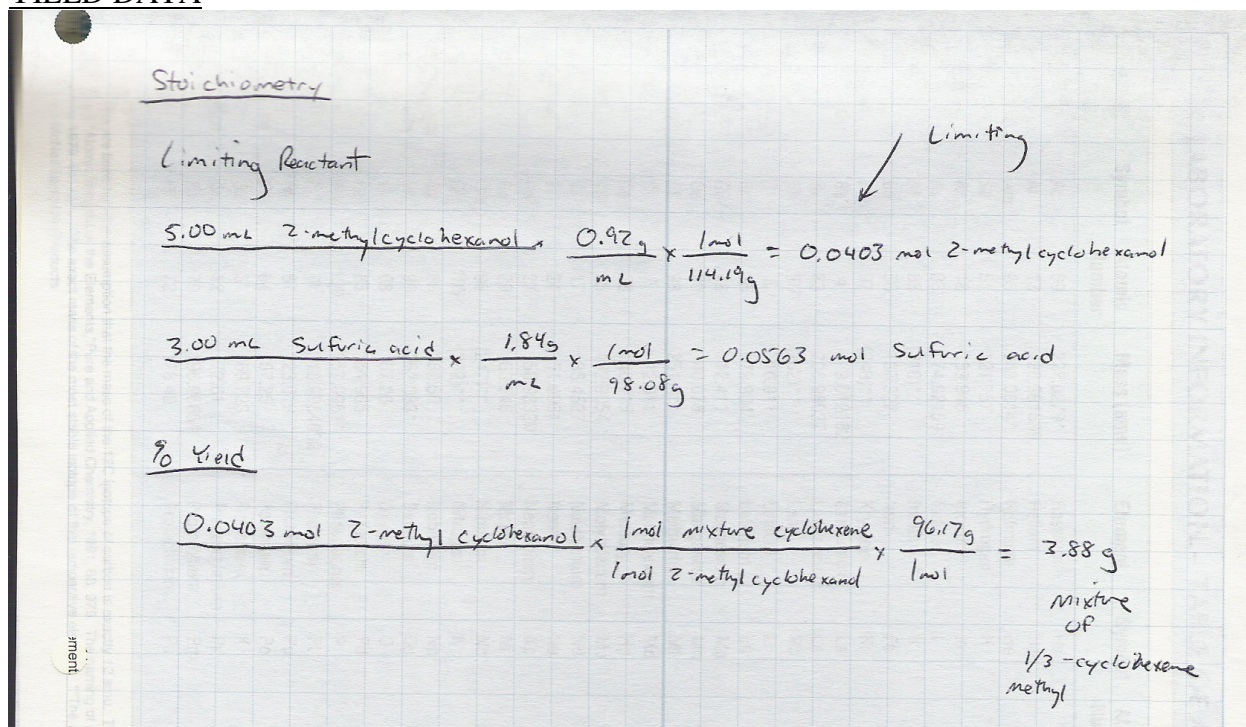 YIELD DATA
Stoichiometry
Limiting Reactant
Limiting
5.00 mL 2-methylcyclohexanol × 0.92g / mL × 1mol / 114.19g = 0.0403 mol 2-methylcyclohexanol
3.00 mL Sulfuric acid × 1.84g / mL × 1mol / 98.08g = 0.0563 mol Sulfuric acid
% Yield
0.0403 mol 2-methyl cyclohexanol × 1mol mixture cyclohexene / 1mol 2-methylcyclohexanol × 96.17g / 1mol = 3.88 g
Mixture
of
1/3-cyclohexene
methyl
ement